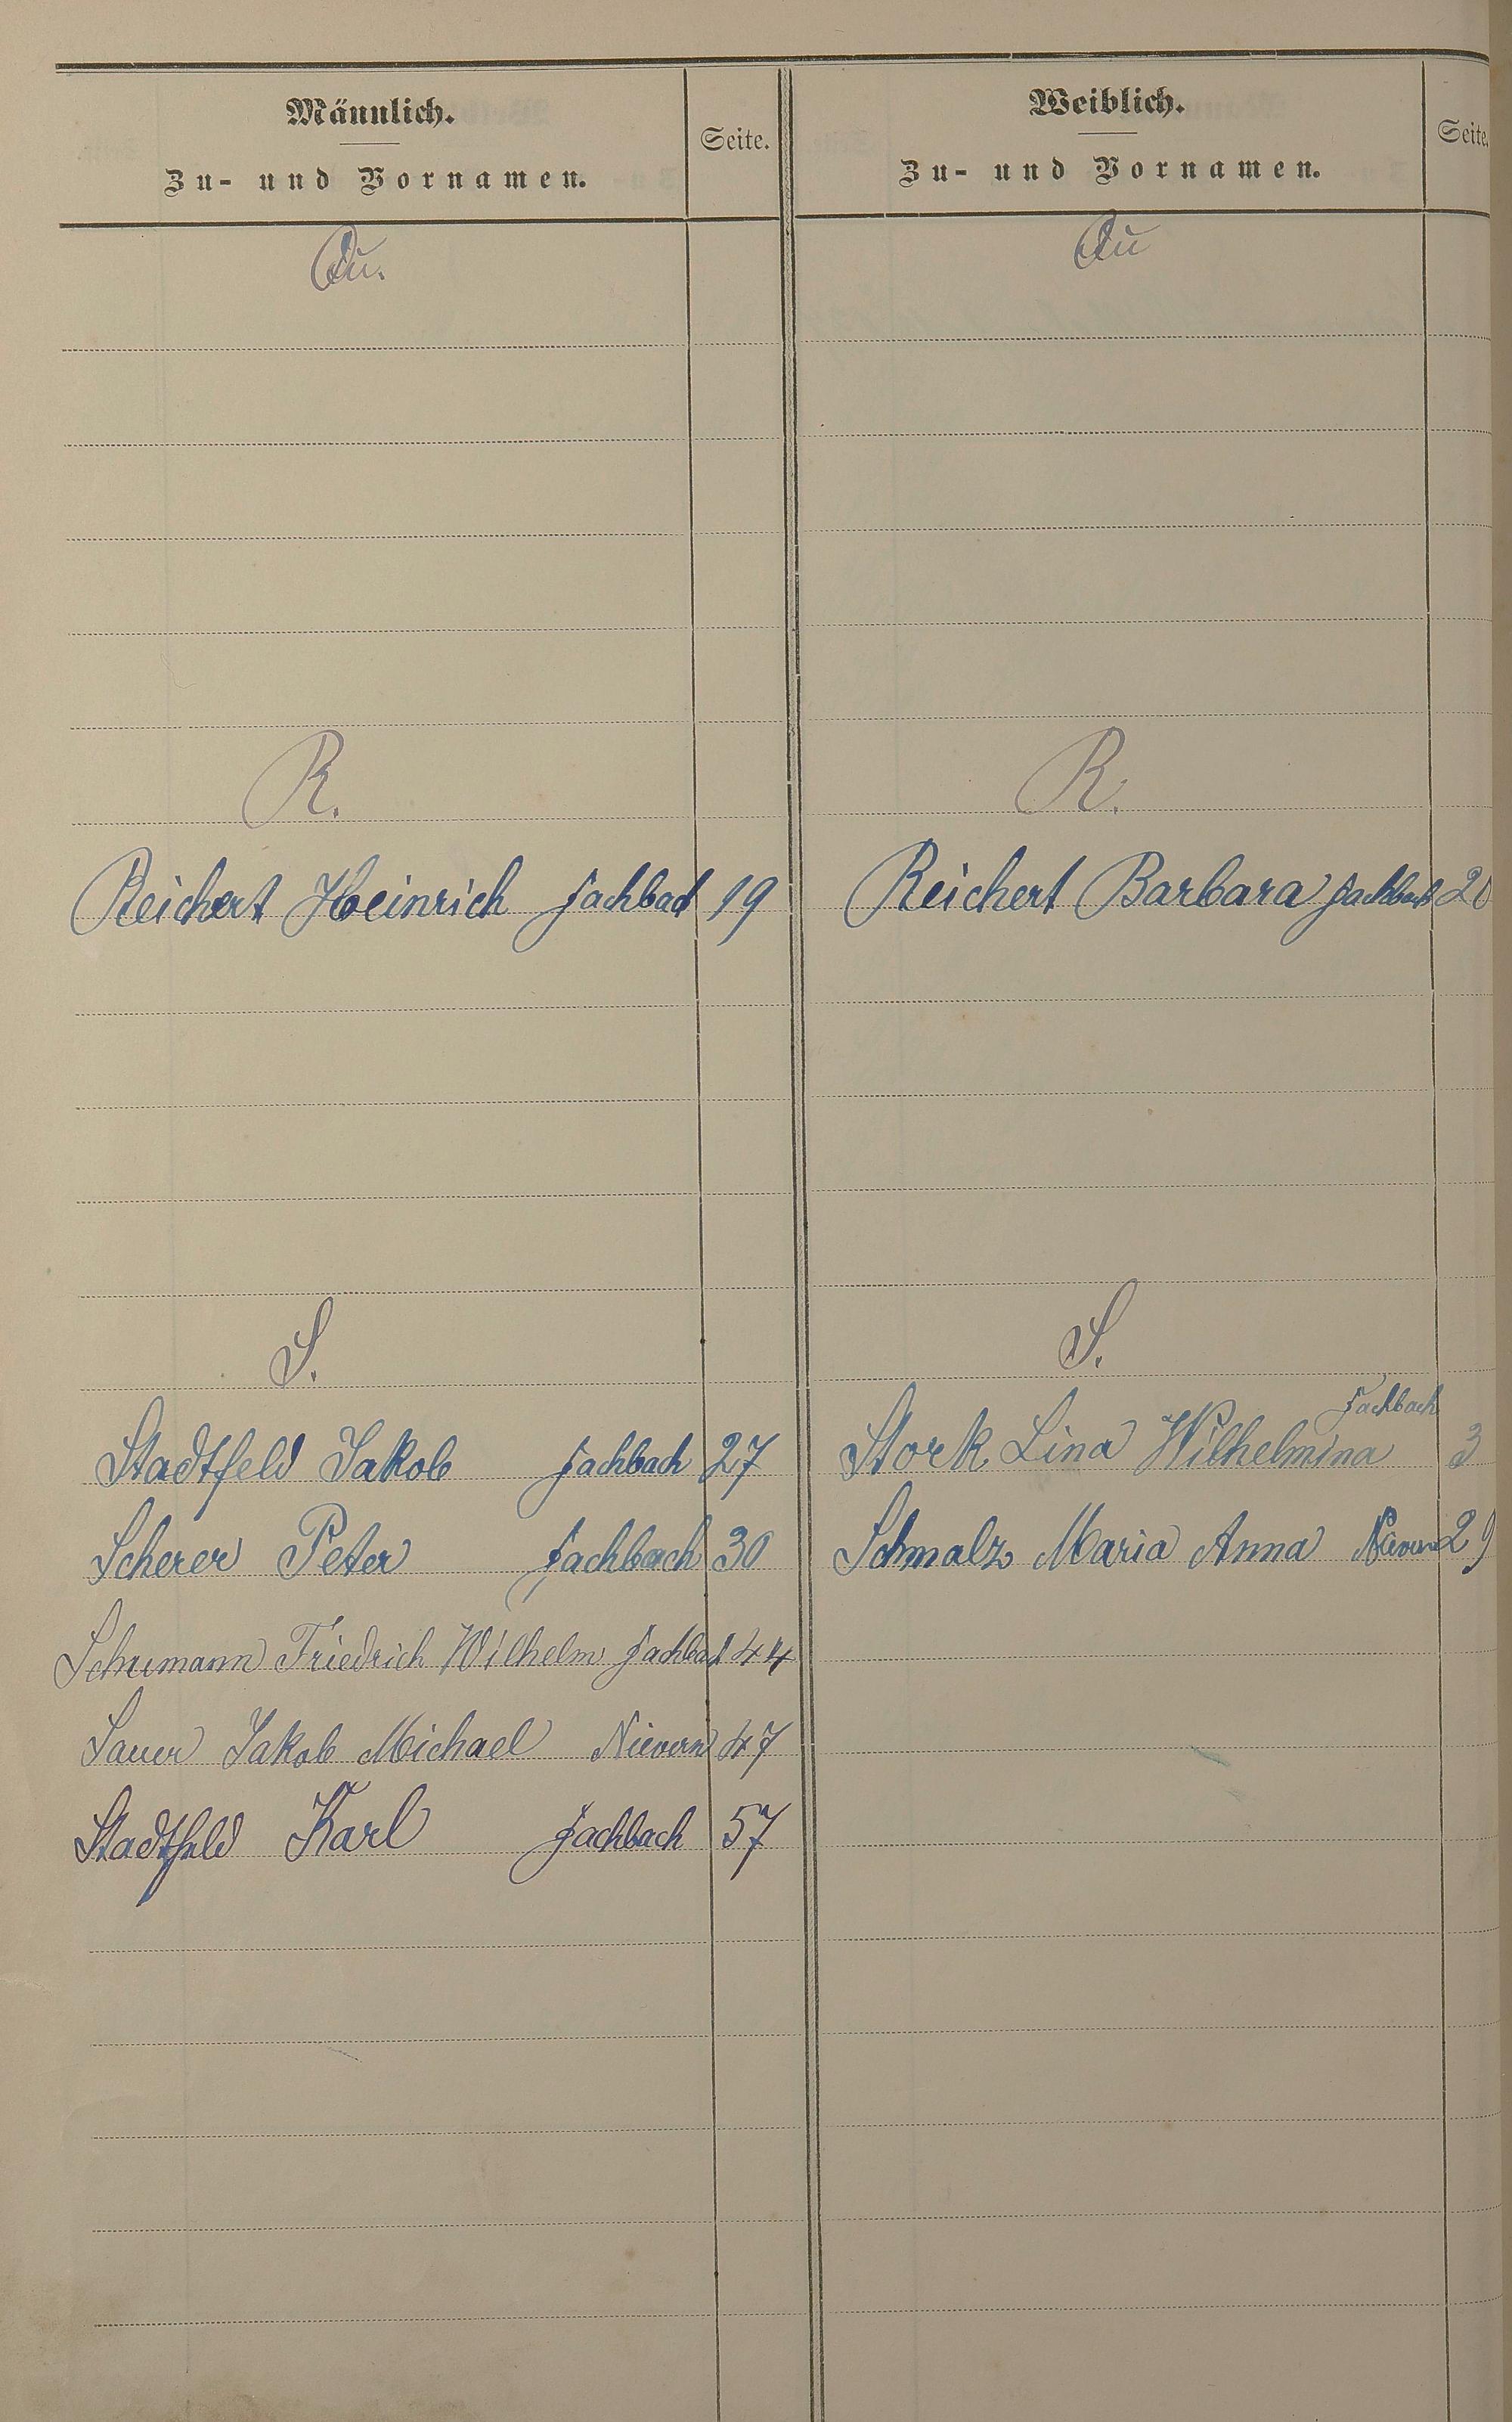 Männlich.
Zu- und Vornamen.
Seite.
Qu.
R.
Reichert Heinrich Fachbach 19
S.
Stadtfeld Jakob Fachbach 27
Scherer Peter Fachbach 30
Schumann Friedrich Wilhelm Fachbach 44
Sauer Jakob Michael Nievern 47
Stadtfeld Karl Fachbach 57
Weiblich.
Zu- und Vornamen.
Seite.
Qu
R.
Reichert Barbara Fachbach 20
S.
Fachbach
Stork Lina Wilhelmina 3
Schmalz Maria Anna Nievern 29